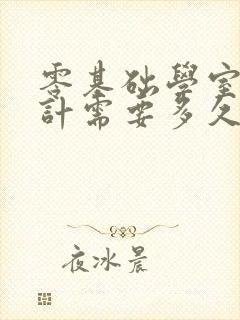 零基础學室
計需要多久
夜冰晨